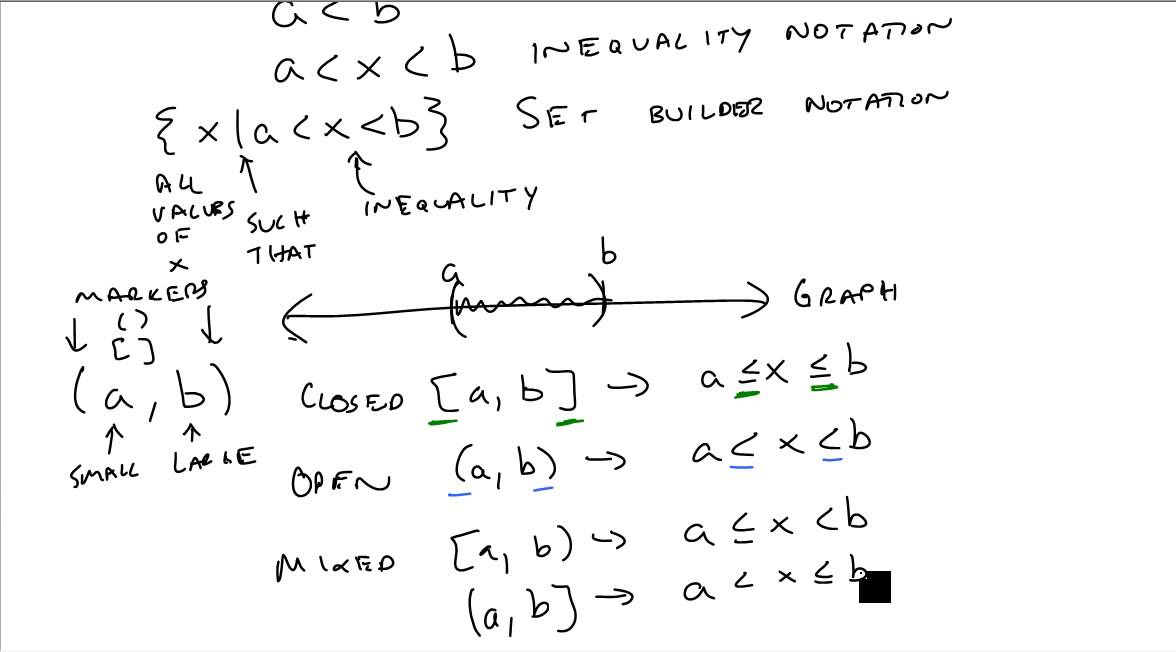 a < b
a < x < b INEQUALITY NOTATION
{ x | a < x < b } SET BUILDER NOTATION
ALL
VALUES
OF
x
SUCH
THAT
INEQUALITY
a b
GRAPH
MARKERS
( )
[ ]
(a, b)
SMALL LARGE
CLOSED [a, b] → a ≤ x ≤ b
OPEN (a, b) → a < x < b
MIXED [a, b) → a ≤ x < b
(a, b] → a < x ≤ b